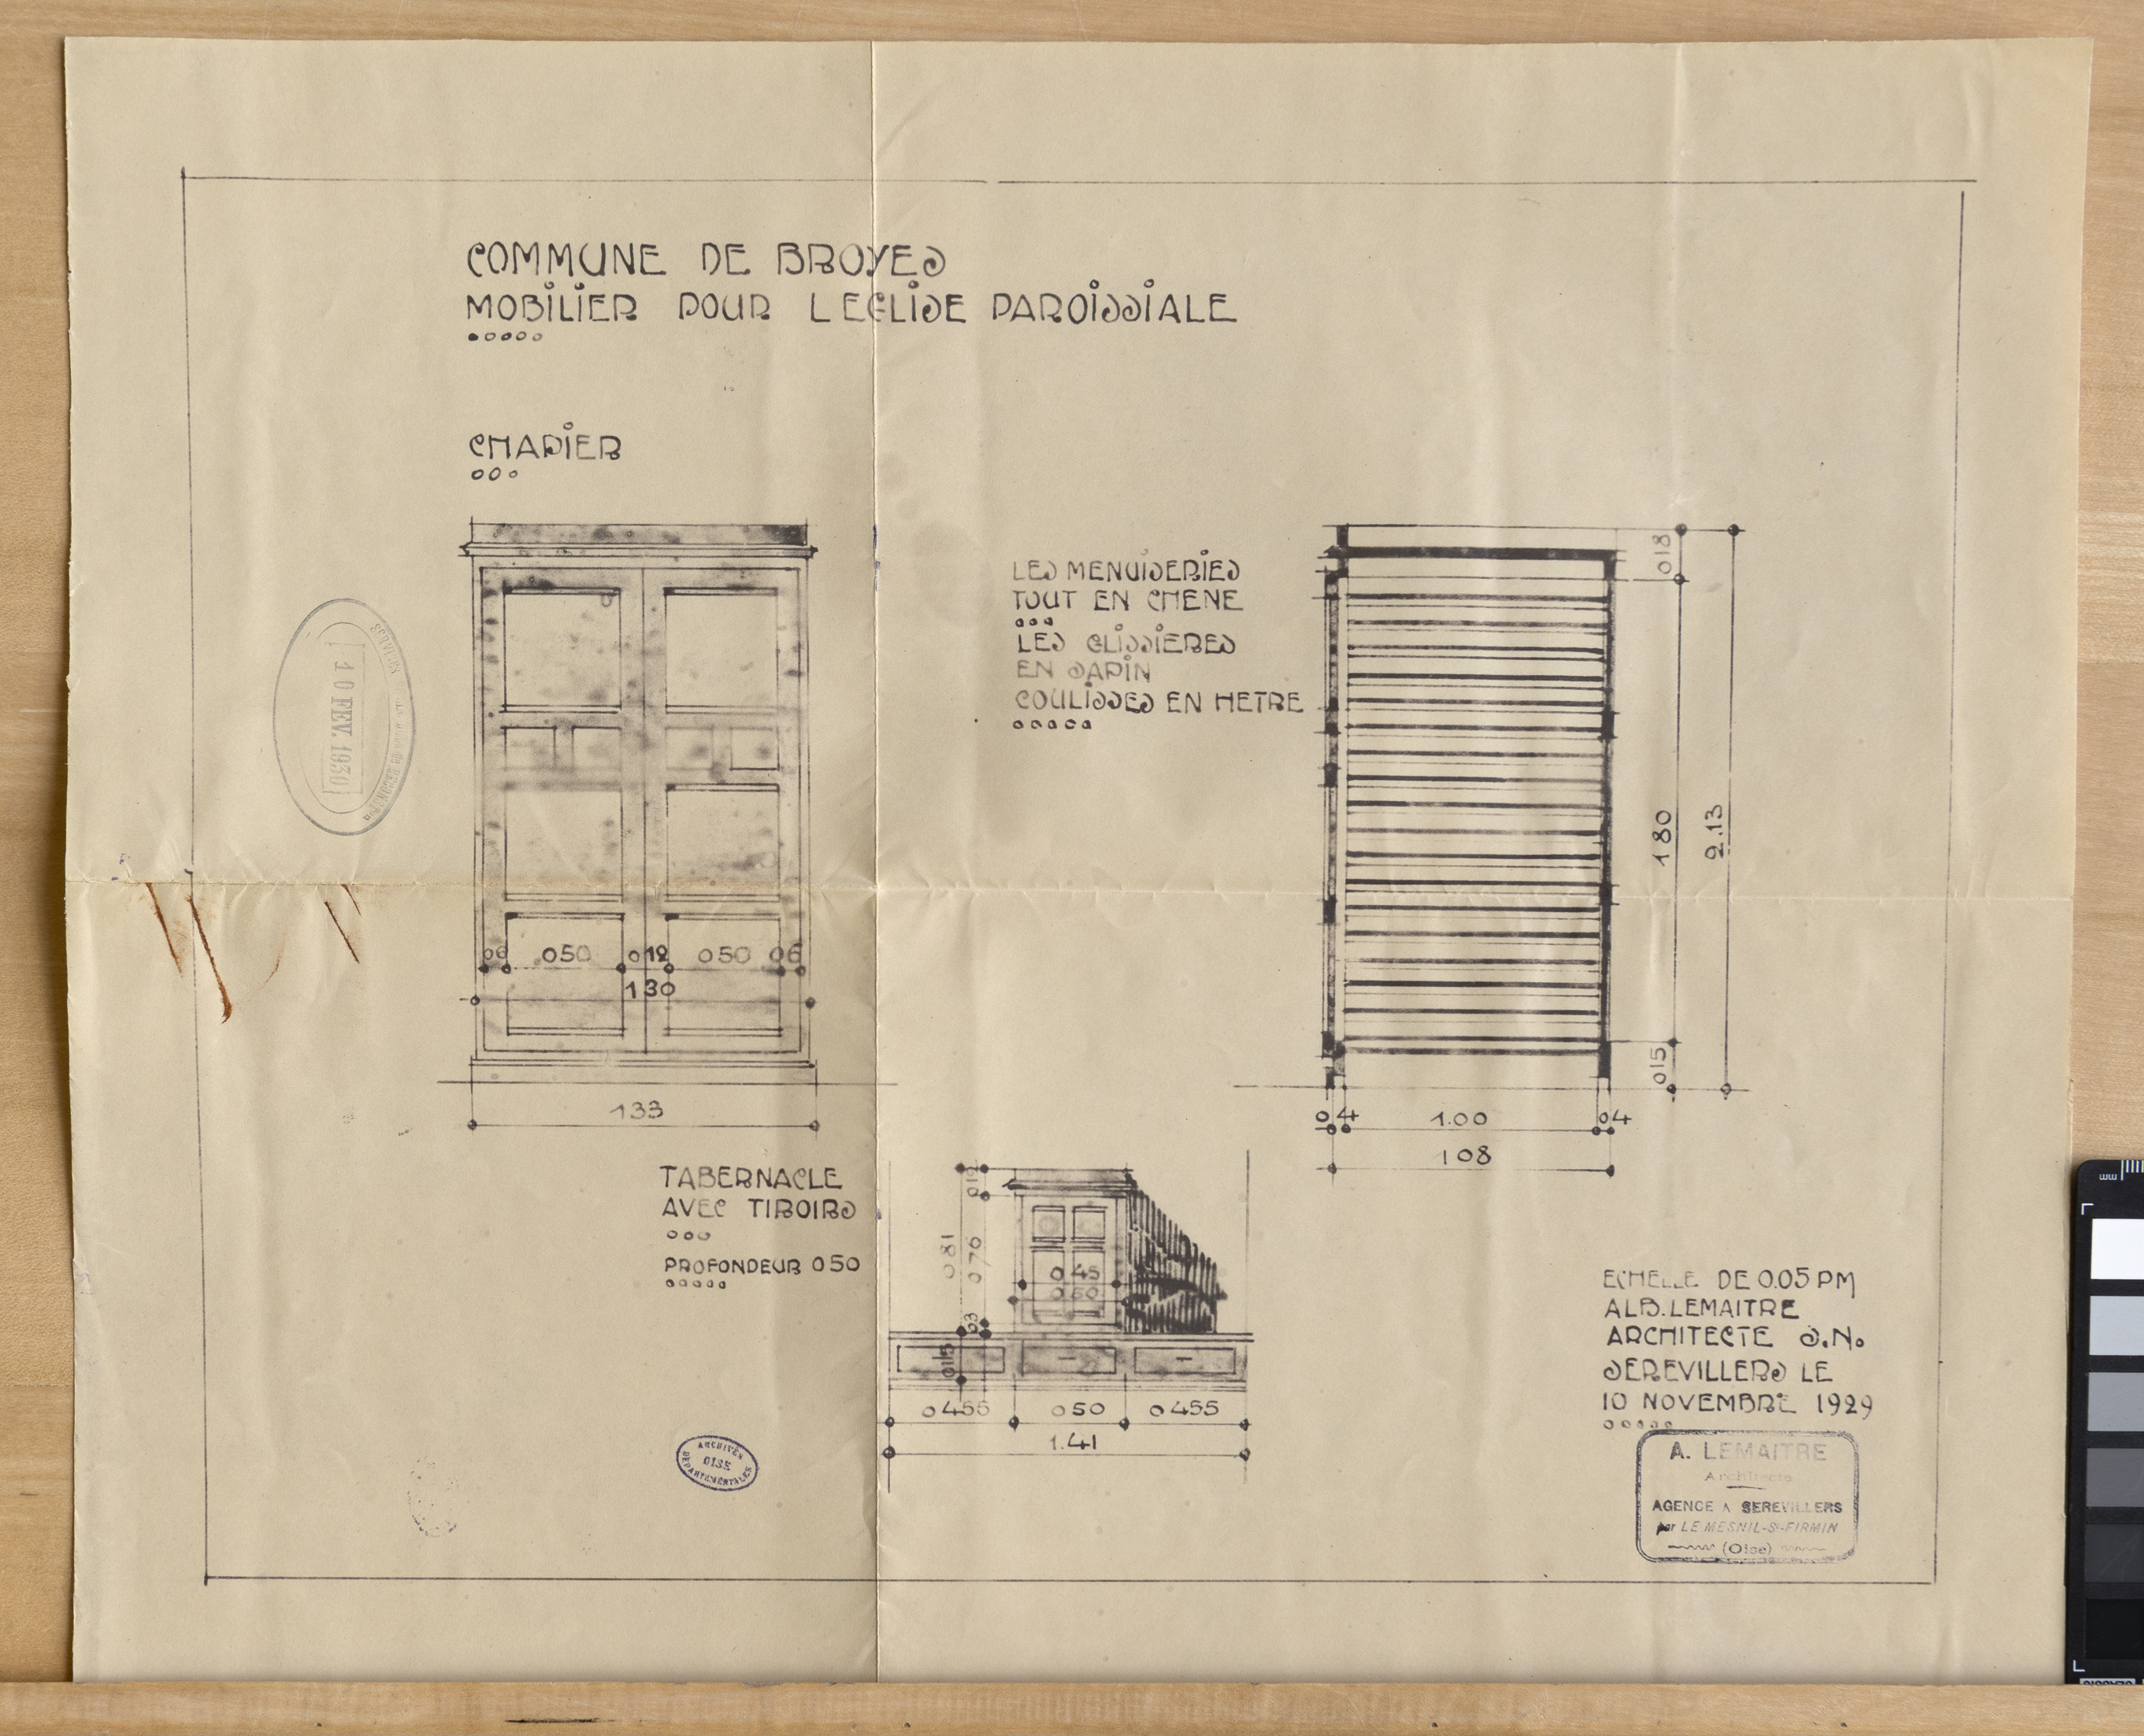 COMMUNE DE BROYES
MOBILIER POUR L EGLISE PAROISSIALE
CHAPIER
LES MENUISERIES
TOUT EN CHENE
LES GLISSIERES
EN SAPIN
COULISSES EN HETRE
018
180
2.13
015
04 1.00 04
108
06 050 012 050 06
130
133
10 FEV. 1930
TABERNACLE
AVEC TIROIRS
PROFONDEUR 050
081
076
03
015
045
050
0455 050 0455
1.41
ECHELLE DE 0.05 PM
ALB. LEMAITRE
ARCHITECTE S.N.
SEREVILLERS LE
10 NOVEMBRE 1929
A. LEMAITRE
Architecte
AGENCE A SEREVILLERS
par LE MESNIL-St-FIRMIN
(Oise)
ARCHIVES
OISE
DEPARTEMENTALES